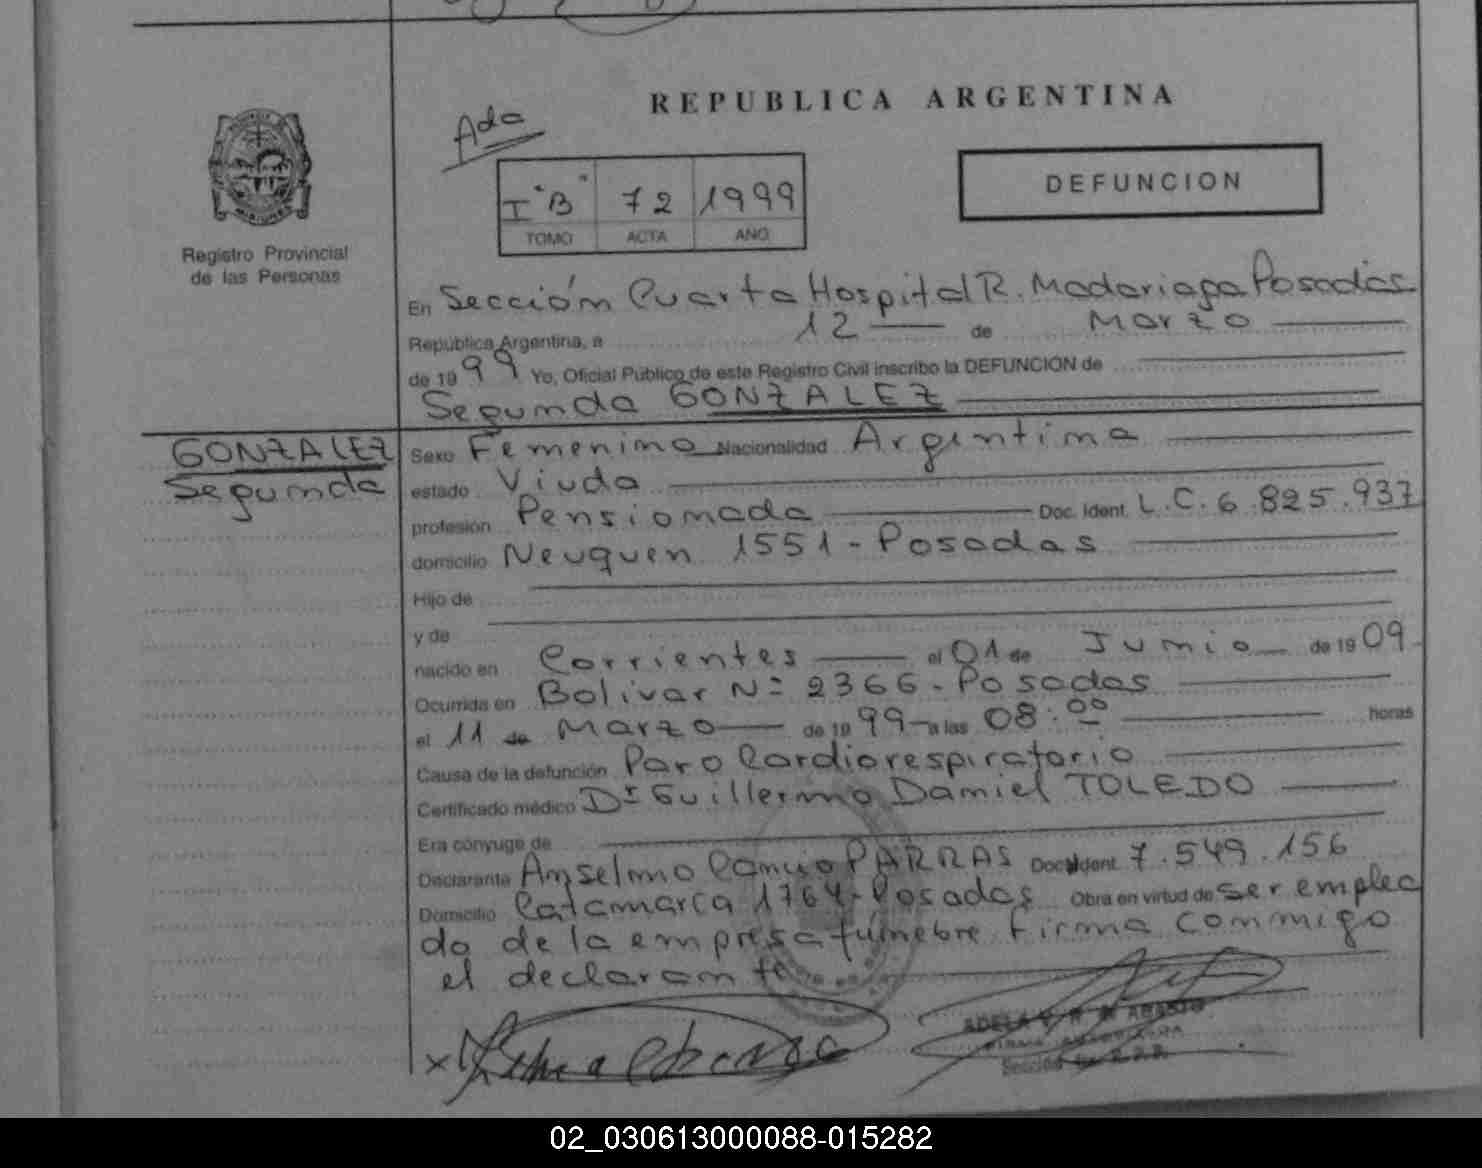 REPUBLICA ARGENTINA
Ada
I "B" 72 1999
TOMO ACTA AÑO
DEFUNCION
Registro Provincial
de las Personas
En Sección Cuarta Hospital R. Madariaga Posadas
República Argentina, a 12 de Marzo
de 1999 Yo, Oficial Público de este Registro Civil inscribo la DEFUNCION de
Segunda GONZALEZ
GONZALEZ
Segunda
Sexo Femenino Nacionalidad Argentina
estado Viuda
profesión Pensionada Doc. Ident. L.C. 6.825.937
domicilio Neuquen 1551 - Posadas
Hijo de
y de
nacido en Corrientes el 01 de Junio de 1909-
Ocurrida en Bolivar Nº 2366 - Posadas
el 11 de Marzo de 1999 a las 08:00 horas
Causa de la defunción Paro Cardiorespiratorio
Certificado médico Dr Guillermo Daniel TOLEDO
Era cónyuge de
Declarante Anselmo PARRAS Doc. Ident. 7.549.156
Domicilio Catamarca 1764 - Posadas Obra en virtud de ser emplea
do de la empresa fúnebre firma conmigo
el declarante
x
ADELA
02_030613000088-015282